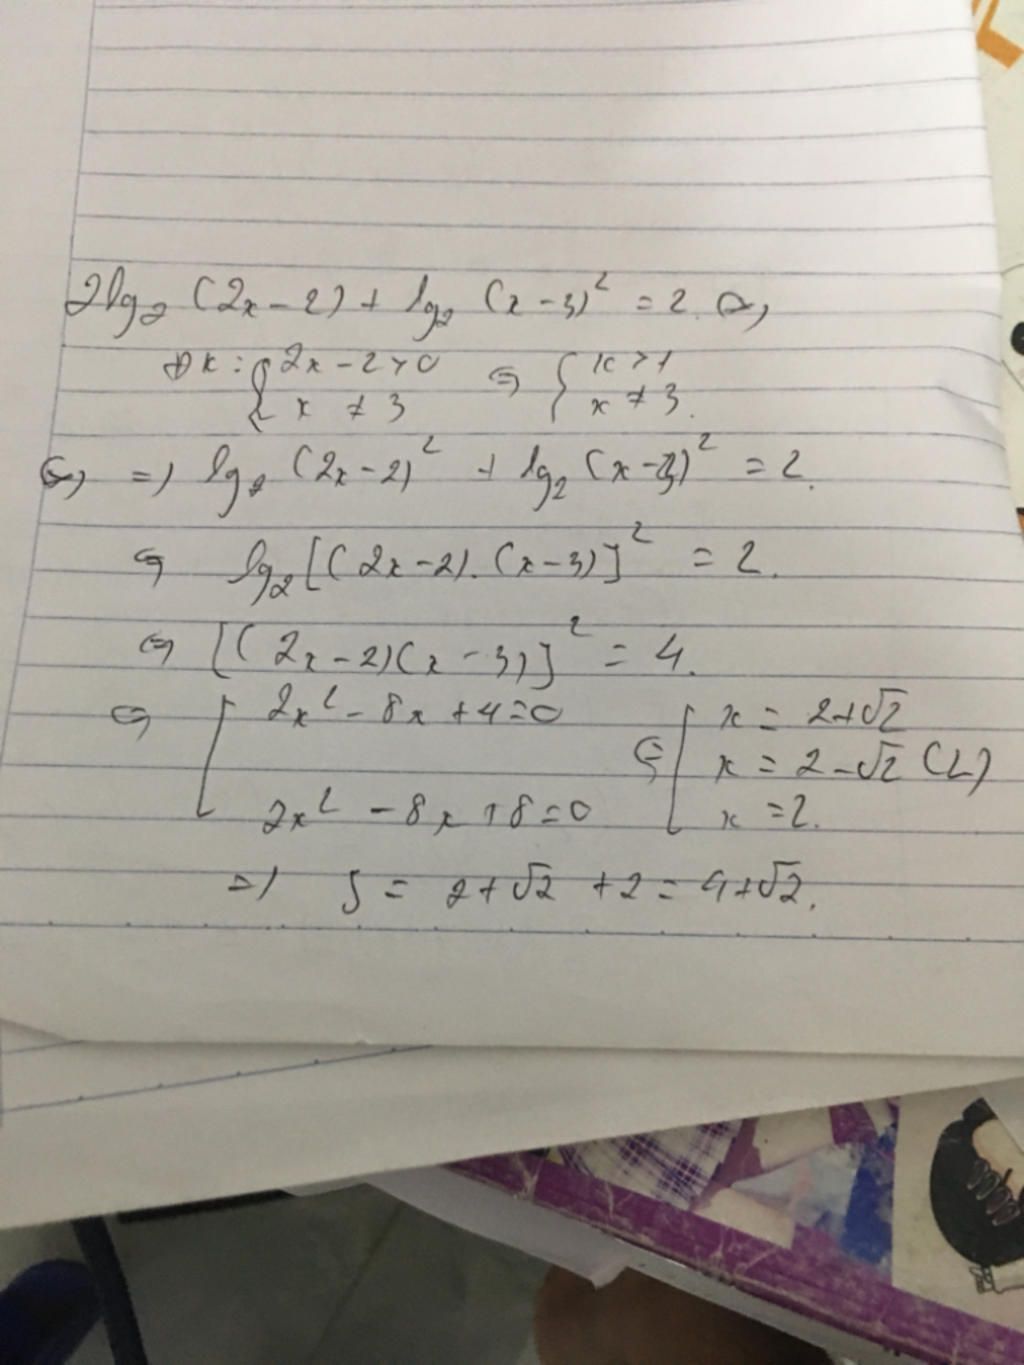 2lg₂ (2x-2) + lg₂ (x-3)² = 2. (*)
ĐK: { 2x-2>0 ; x ≠ 3 ⇔ { x>1 ; x ≠ 3.
(*) => lg₂ (2x-2)² + lg₂ (x-3)² = 2.
⇔ lg₂ [(2x-2).(x-3)]² = 2.
⇔ [(2x-2)(x-3)]² = 4.
⇔ [ 2x² - 8x + 4 = 0 ; 2x² - 8x + 8 = 0 ⇔ [ x = 2+√2 ; x = 2-√2 (L) ; x = 2.
=> S = 2+√2 + 2 = 4+√2.